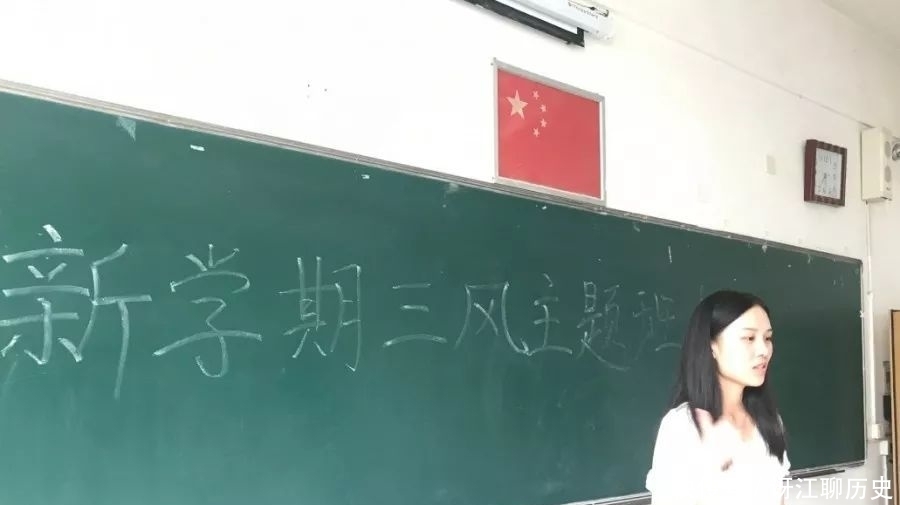 新学期三风主题班
江聊历史